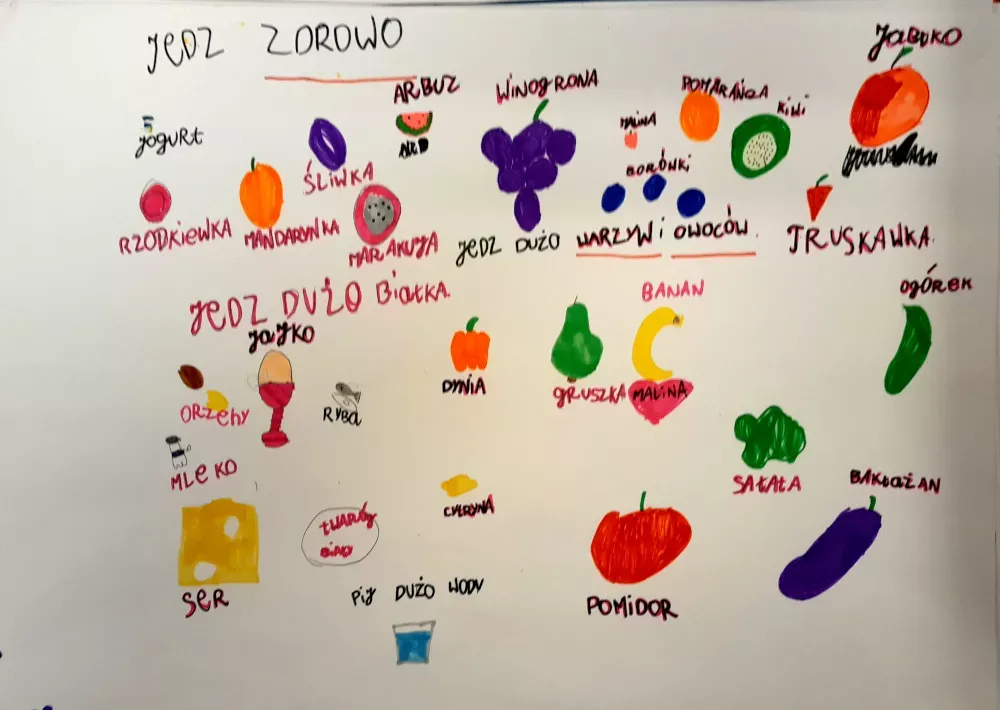 JEDZ ZDROWO
JABŁKO
ARBUZ
WINOGRONA
POMARAŃCA
KIWI
MALINA
jogurt
ŚLIWKA
BORÓWKI
RZODKIEWKA
MANDARYNKA
MARAKUJA
JEDZ DUŻO WARZYW i OWOCÓW.
TRUSKAWKA.
JEDZ DUŻO BiAŁKA.
BANAN
OGÓREK
JAJKO
DYNIA
GRUSZKA
MALINA
ORZEHY
RYBA
MLEKO
SAŁATA
BAKŁAŻAN
CYTRYNA
tWARÓG
SER
Pij DUŻO WODY
POMiDOR